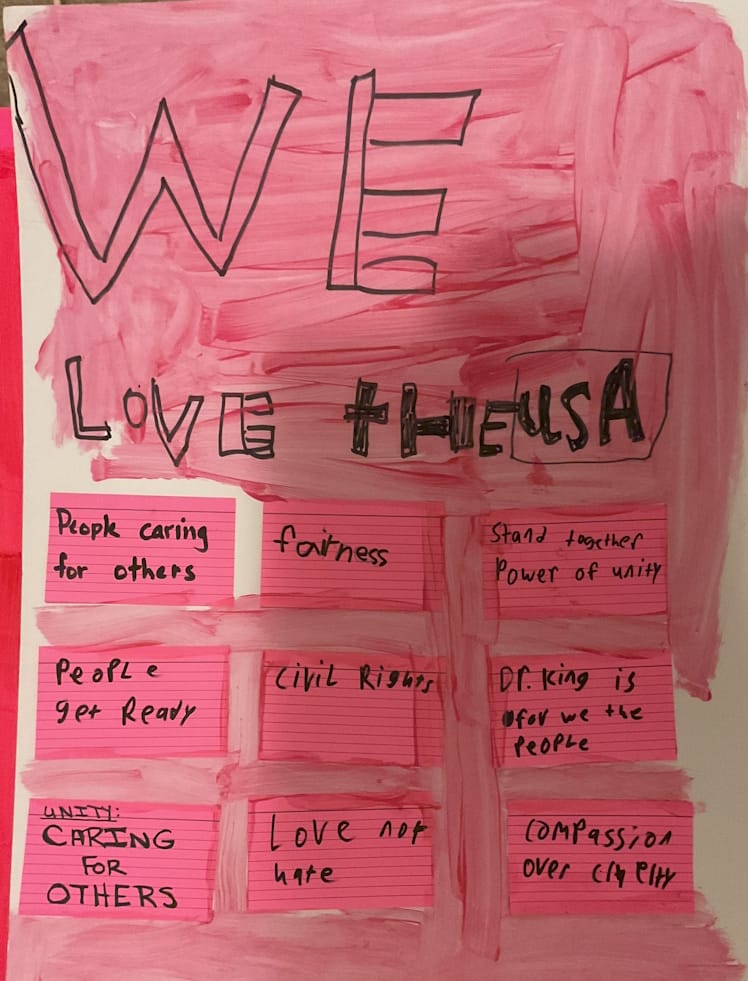 WE
LOVE THE USA
People caring
for others
fairness
Stand together
Power of unity
PeoPLe
get Ready
CiviL Rights
Dr. King is
for we the
PeoPLe
UNITY:
CARING
FOR
OTHERS
Love not
hate
comPassion
over cruelty